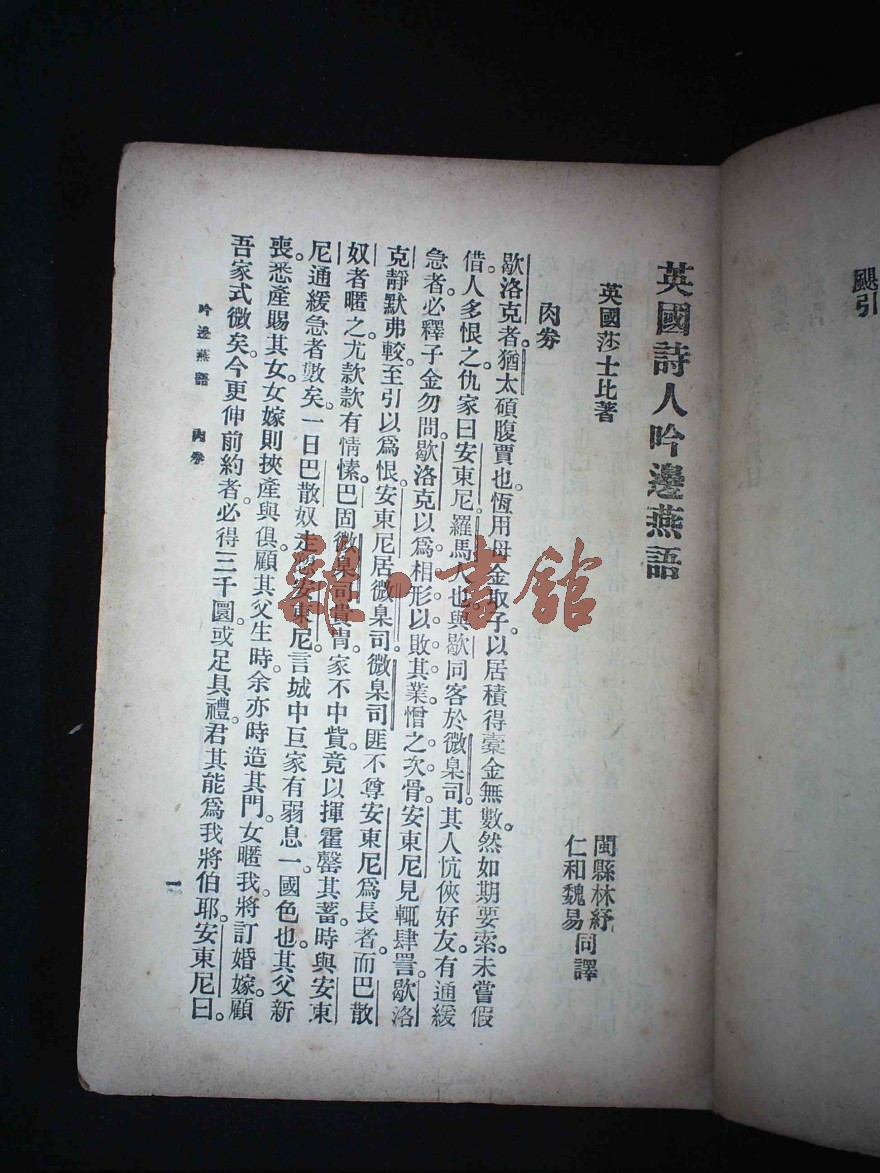 颶引
英國詩人吟邊燕語
英國莎士比著
閩縣林紓
仁和魏易
同譯
肉券
歇洛克者。猶太碩腹賈也。恆用母金取子。以居積得橐金無數。然如期要索。未嘗假
借。人多恨之。仇家曰安東尼。羅馬人也。與歇同客於微臬司。其人忼俠好友。有通緩
急者。必釋子金勿問。歇洛克以爲相形。以敗其業。憎之次骨。安東尼見輒肆詈。歇洛
克靜默弗較。至引以爲恨。安東尼居微臬司。微臬司匪不尊安東尼爲長者。而巴散
奴者暱之尤款款有情愫。巴固微臬司貴胄。家不中貲。竟以揮霍罄其蓄。時與安東
尼通緩急者數矣。一日巴散奴走安東尼。言城中巨家有弱息一。國色也。其父新
喪。悉產賜其女。女嫁則挾產與俱。顧其父生時。余亦時造其門。女暱我。將訂婚嫁。顧
吾家式微矣。今更伸前約者。必得三千圜。或足具禮。君其能爲我將伯耶。安東尼曰。
吟邊燕語 肉券
一
雜·書館